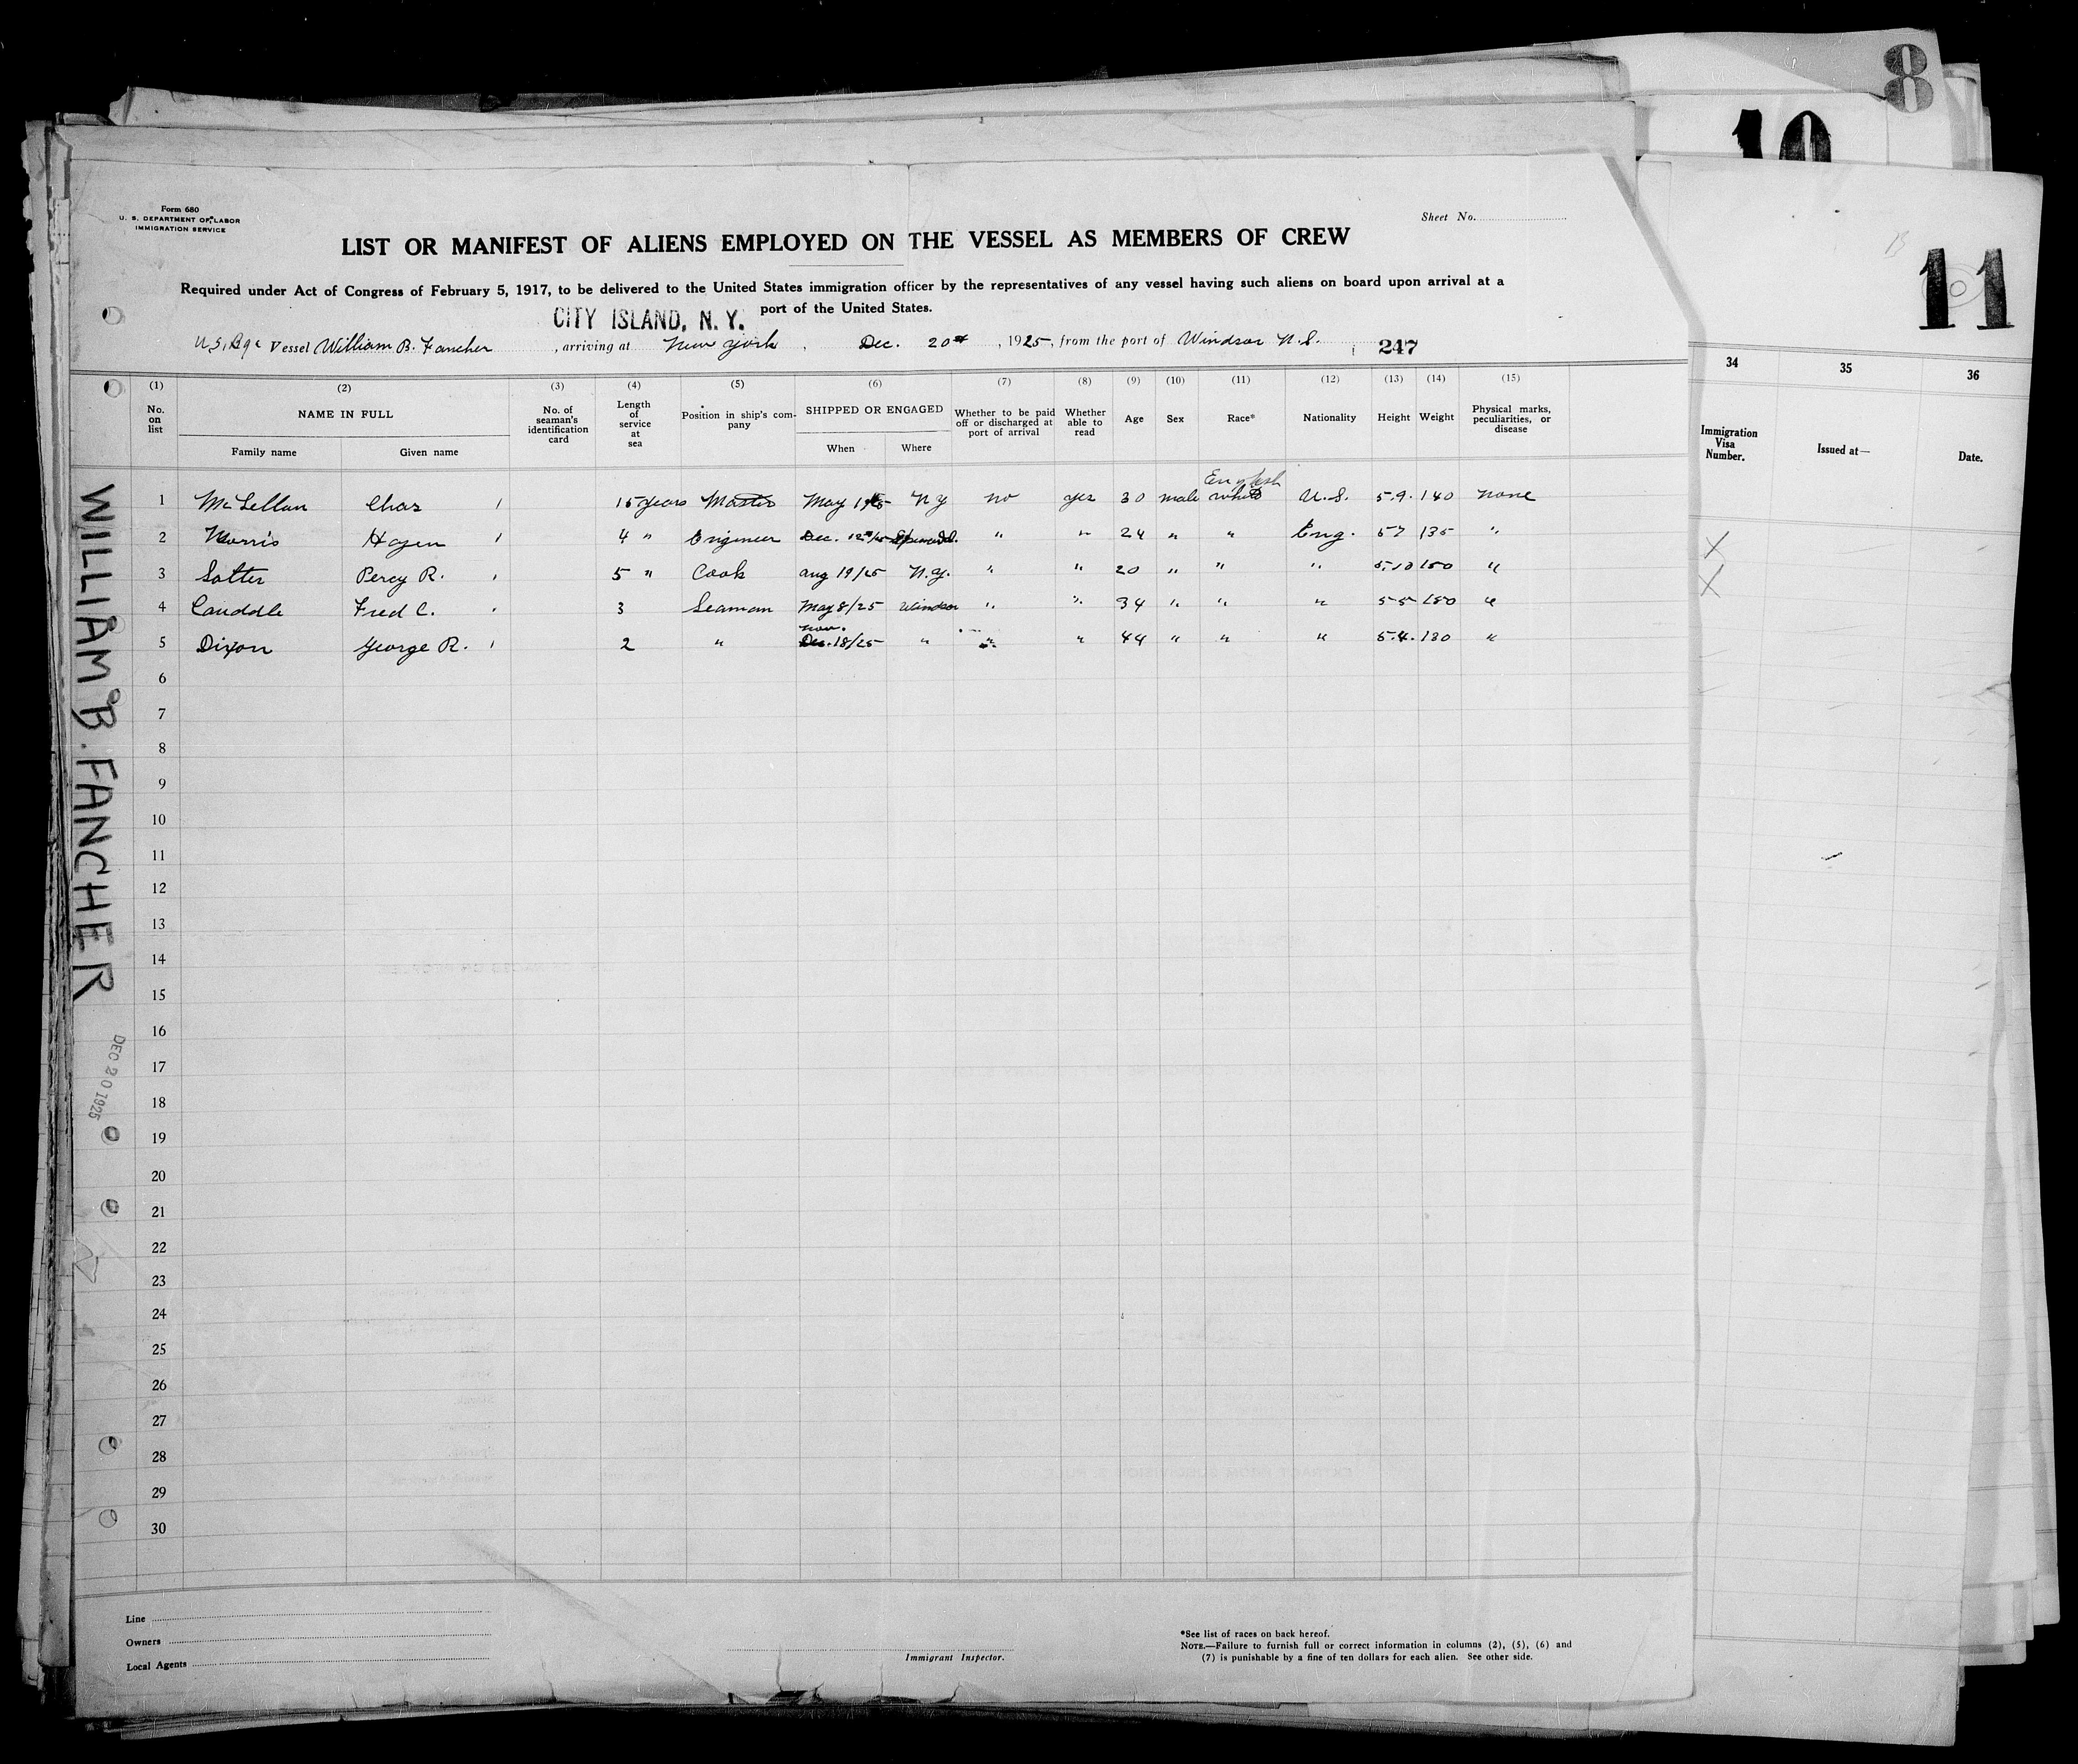 8
10
11
Form 680
U. S. DEPARTMENT OF LABOR
IMMIGRATION SERVICE
Sheet No.
LIST OR MANIFEST OF ALIENS EMPLOYED ON THE VESSEL AS MEMBERS OF CREW
Required under Act of Congress of February 5, 1917, to be delivered to the United States immigration officer by the representatives of any vessel having such aliens on board upon arrival at a
port of the United States.
CITY ISLAND, N. Y.
Vessel William B. Fancher, arriving at New York, Dec. 20th, 1925, from the port of Windsor N.S. 247
(1) (2) (3) (4) (5) (6) (7) (8) (9) (10) (11) (12) (13) (14) (15)
No. on list NAME IN FULL No. of seaman's identification card Length of service at sea Position in ship's company SHIPPED OR ENGAGED Whether to be paid off or discharged at port of arrival Whether able to read Age Sex Race* Nationality Height Weight Physical marks, peculiarities, or disease
Family name Given name When Where
34 35 36
Immigration Visa Number. Issued at— Date.
English
1 McLellan Chas 15 years Master May 1925 N Y no yes 30 male white U.S. 5.9. 140 none
2 Norris Hazen 4 " Engineer Dec. " " 24 " " Eng. 57 135 "
3 Salter Percy R. 5 " Cook aug 19/25 N.Y. " " 20 " " " 5.10 150 "
4 Cauddle Fred C. 3 Seaman May 8/25 Windsor " " 34 " " " 5-5- 150 "
nov.
5 Dixon George R. 2 " Dec. 18/25 " " " 44 " " " 5.4. 130 "
6
7
8
9
10
11
12
13
14
15
16
17
18
19
20
21
22
23
24
25
26
27
28
29
30
WILLIAM B. FANCHER
DEC 20 1925
Line
Owners
Local Agents
Immigrant Inspector.
*See list of races on back hereof.
NOTE.—Failure to furnish full or correct information in columns (2), (5), (6) and
(7) is punishable by a fine of ten dollars for each alien. See other side.